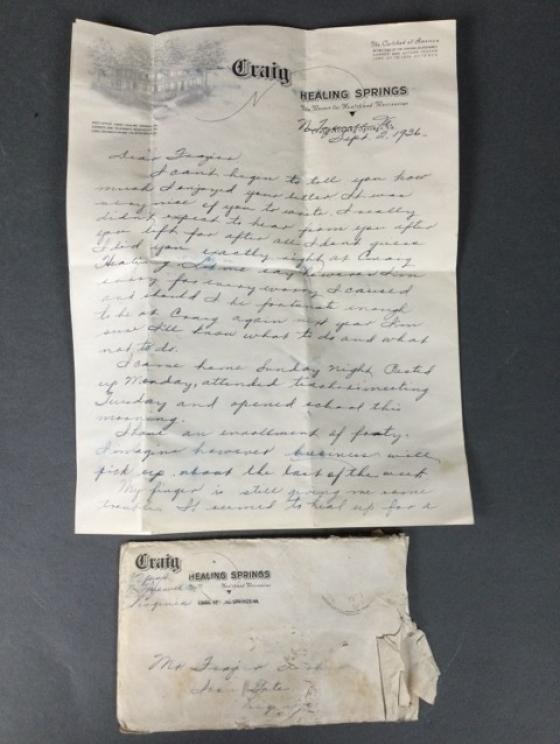 Craig
HEALING SPRINGS
Sept. 2, 1936.
Dear Frazier
I can't begin to tell you how
much I enjoyed your letter. It was
very nice of you to write. I really
didn't expect to hear from you after
you left for after all I don't guess
I did you exactly right at Craig
Healing. Let me say however I'm
sorry for every worry I caused
and should I be fortunate enough
to be at Craig again next year I'm
sure I'll know what to do and what
not to do.
I came home Sunday night. Rested
up Monday, attended teachers meeting
Tuesday and opened school this
morning.
I have an enrollment of forty.
I imagine however business will
pick up about the last of the week
My finger is still giving me some
trouble. It seemed to heal up for a
Craig
HEALING SPRINGS
Virginia
Mr Frazier
Gate